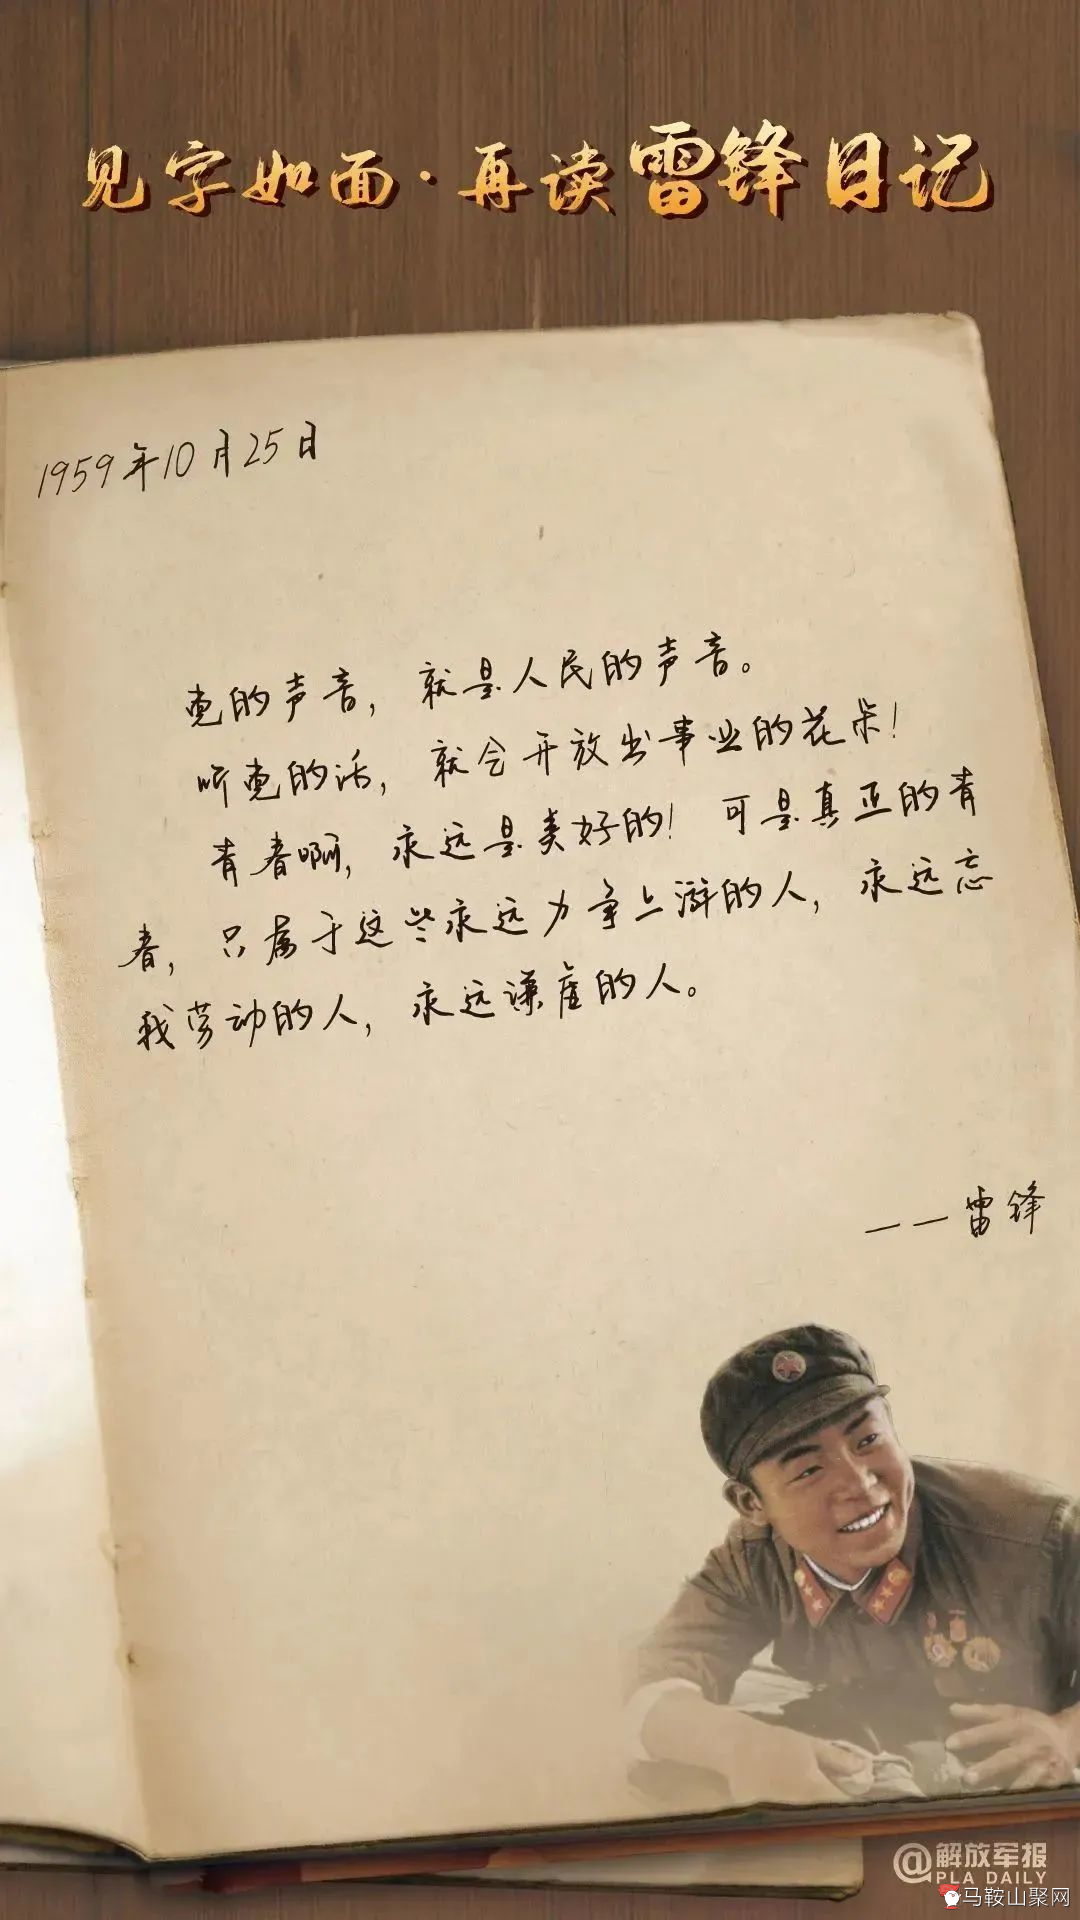 见字如面·再读雷锋日记
1959年10月25日
党的声音，就是人民的声音。
听党的话，就会开放出事业的花朵！
青春啊，永远是美好的！可是真正的青
春，只属于这些永远力争上游的人，永远忘
我劳动的人，永远谦虚的人。
——雷锋
@解放军报
PLA DAILY
马鞍山聚网